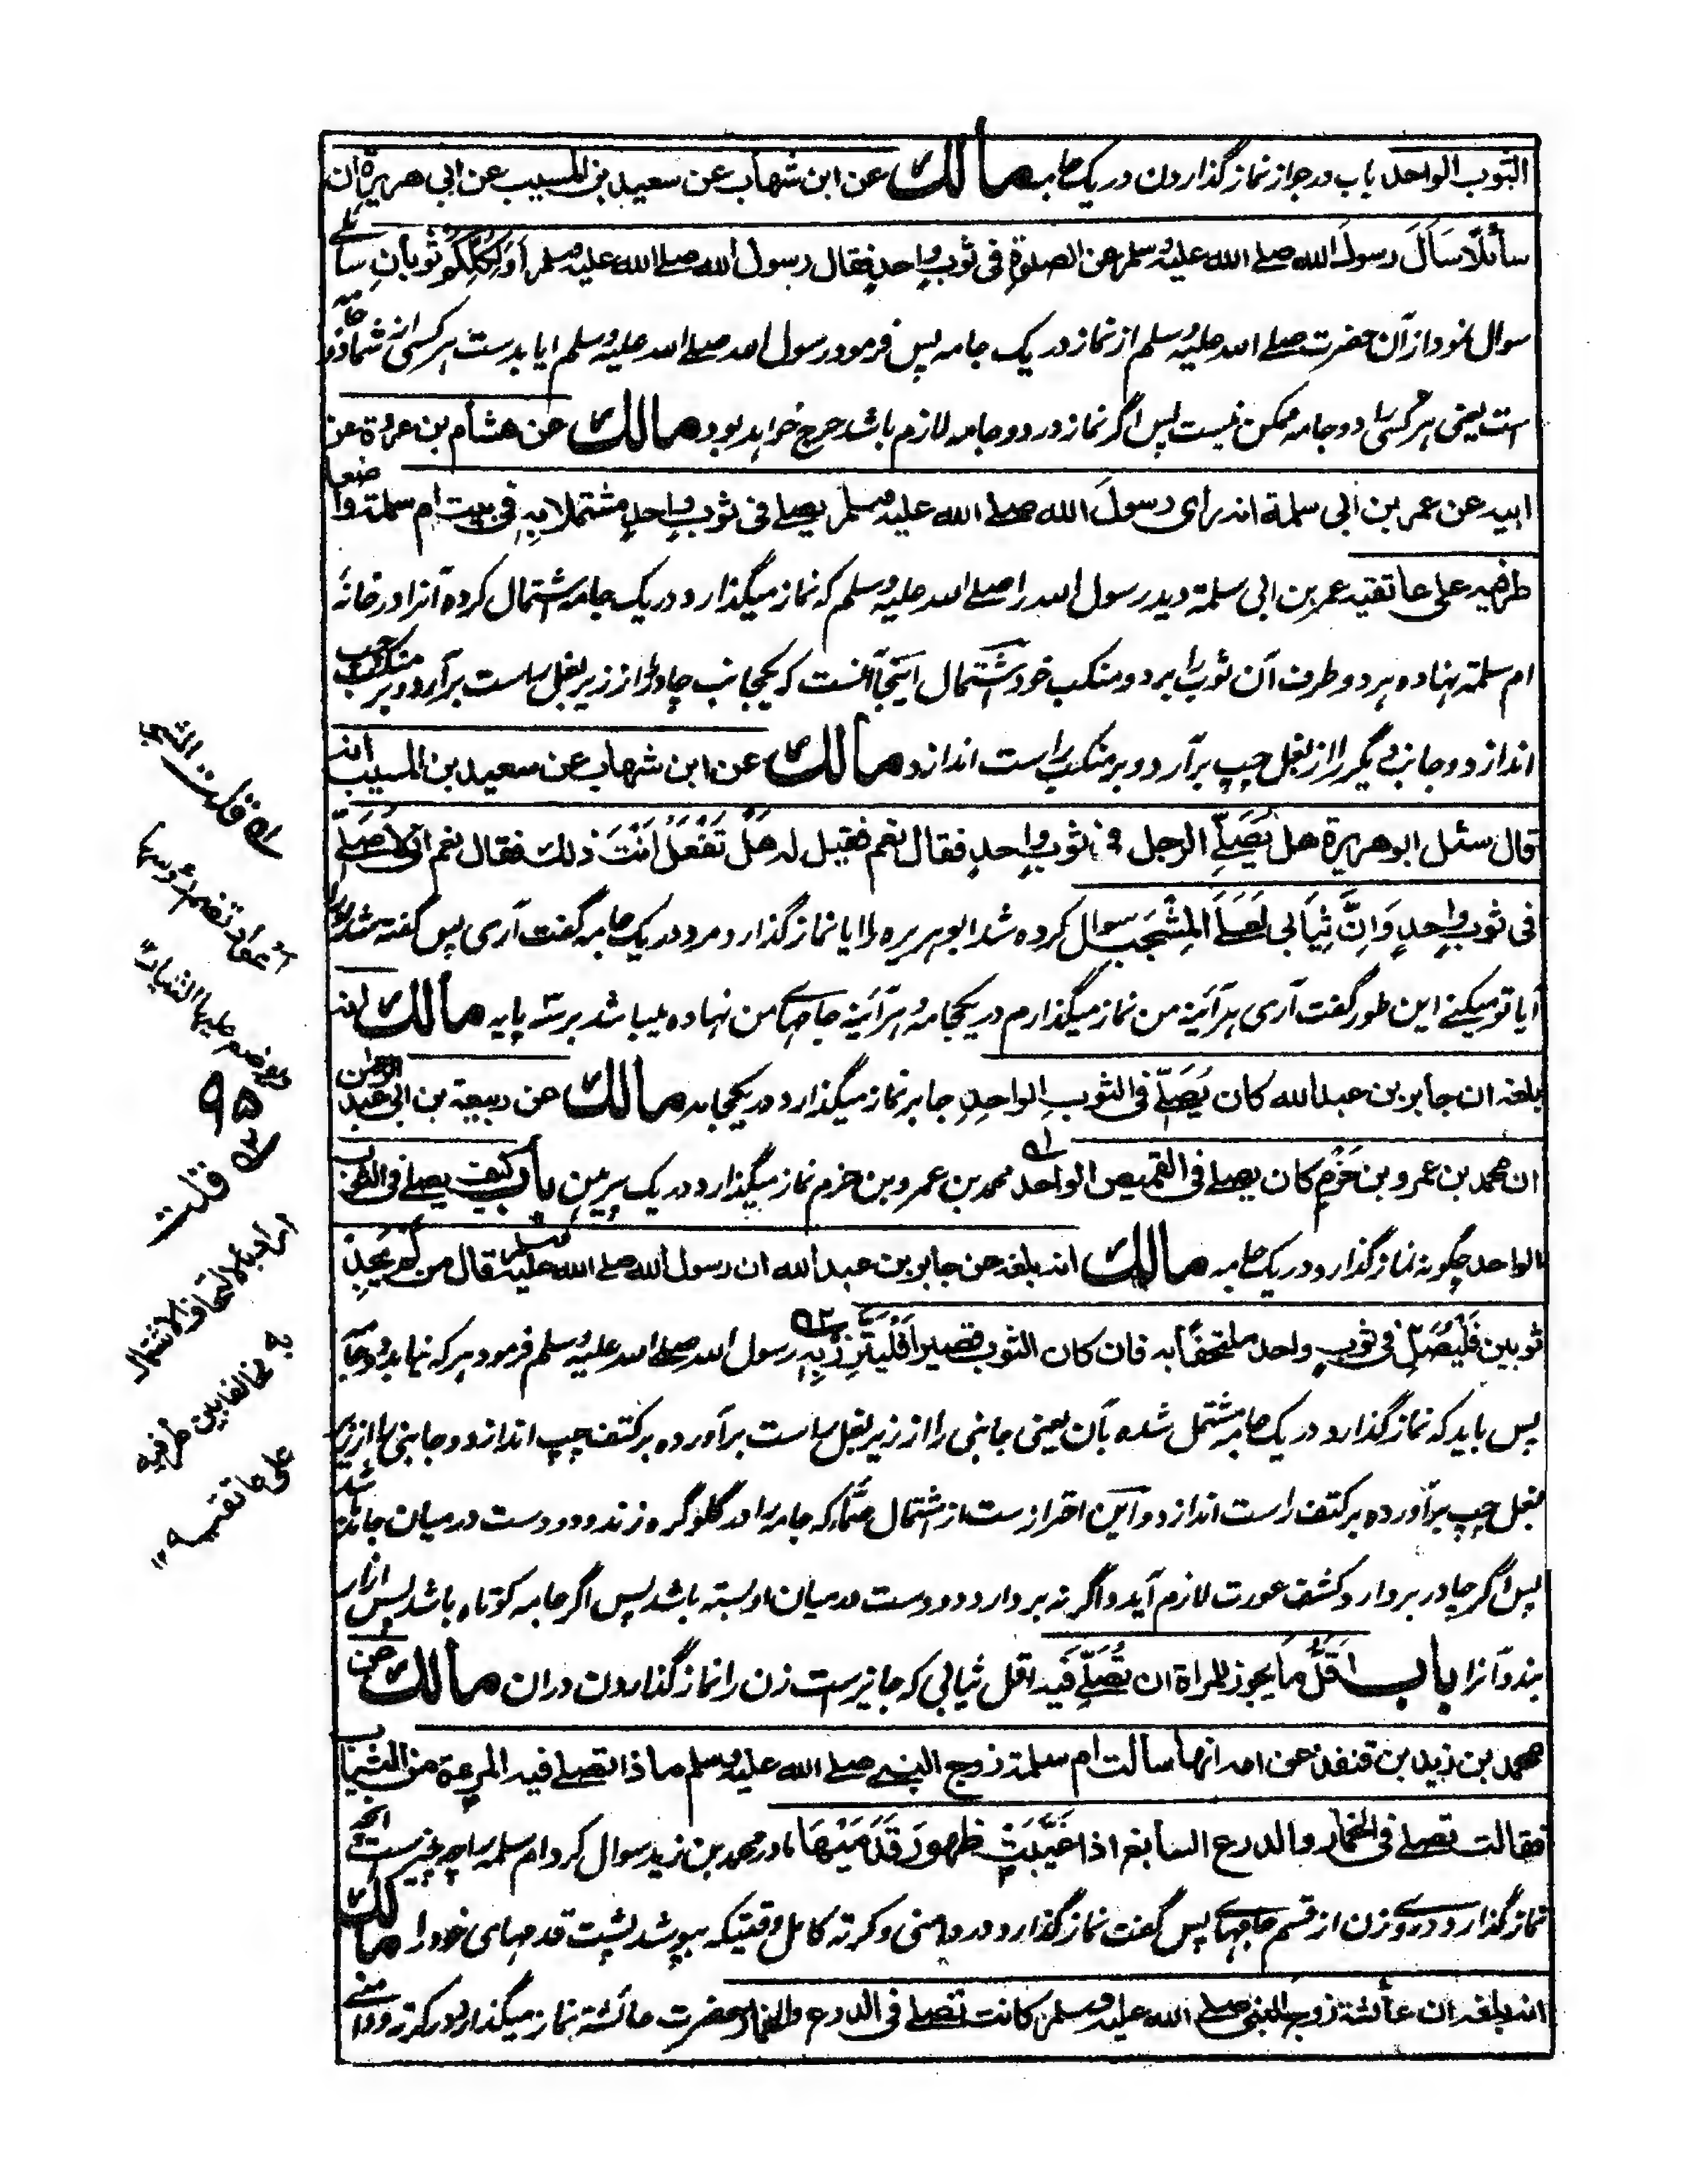 الثوب الواحد باب در جواز نماز گذاردن در یک جامه مالك عن ابن شهاب عن سعيد بن المسيب عن ابي هريرة ان
سائلًا سَاَلَ رسولَ الله صلے الله عليه وسلم عن الصلوةِ فى ثوبٍ واحدٍ فقال رسول الله صلے الله عليه وسلم أوَلِكُلِّكُمْ ثوبانِ سائلے
سوال نمود از آن حضرت صلے الله علیه وسلم از نماز در یک جامه پس فرمود رسول الله صلے الله علیه وسلم ایا بدست هر کسی از شما دو جامه
است یعنی هر کسی را دو جامه ممکن نیست پس اگر نماز در دو جامه لازم باشد حرج خواهد بود مالك عن هشام بن عروة عن
ابيه عن عمر بن ابى سلمة انه راى رسولَ الله صلے الله عليه وسلم يصلے فى ثوبٍ واحدٍ مشتملا بِهِ فى بيت ام سلمة واضعا
طرفيه على عاتقيه عمر بن ابی سلمة دید رسول الله را صلے الله علیه وسلم که نماز میگذارد در یک جامه اشتمال کرده آنرا در خانهٔ
ام سلمة نهاده هر دو طرف آن ثوب را بر دو منکب خود اشتمال اینجا آنست که یکجانب چادر را از زیر بغل راست برآرد و بر منکب چپ
اندازد و جانب دیگر را از بغل چپ برآرد و بر منکب راست اندازد مالك عن ابن شهاب عن سعيد بن المسيب انه
قال سئل ابو هريرة هل يُصَلِّے الرجل فى ثوبٍ واحدٍ فقال نعم فقيل له هَلْ تَفْعَلُ اَنْتَ ذلك فقال نعم انى لاُصَلِّے
فى ثوبٍ واحدٍ وَاِنَّ ثِيَابى لَعَلَے المِشْجَبِ سوال کرده شد ابو هریره را ایا نماز گذارد مرد در یک جامه گفت آری پس گفته شد او را
آیا تو میکنے این طور گفت آری هر آئینه من نماز میگذارم در یکجامه و هر آئینه جامهاے من نهاده میباشد بر سه پایه مالك انه
بلغه ان جابر بن عبد الله كان يُصَلِّے فى الثوبِ الواحدِ جابر نماز میگذارد در یکجامه مالك عن ربيعة بن ابى عبد الرحمن
ان محمد بن عمرو بن حَزْمٍ كان يصلے فى القميص الواحد محمد بن عمرو بن حزم نماز میگذارد در یک پیرهن باب كيف يصلے فى الثوب
الواحد چگونه نماز گذارد در یک جامه مالك انه بلغه عن جابر بن عبد الله ان رسول الله صلے الله عليه وسلم قال من لم يَجِدْ
ثوبين فَلْيُصَلِّ فى ثوبٍ واحد ملتحفًا به فان كان الثوب قصيرا فَلْيَتَّزِرْ بِهِ رسول الله صلے الله علیه وسلم فرمود هر که نیابد دو جامه
پس باید که نماز گذارد در یک جامه مشتمل شده بآن یعنی جانبی را از زیر بغل راست برآورده بر کتف چپ اندازد و جانبی را از زیر
بغل چپ برآورده بر کتف راست اندازد و این احتراز ست از اشتمال صَمّا که جامه را در گلو گره زند و دو دست در میان جامه باشد
پس اگر چادر بردارد کشف عورت لازم آید و اگر نه بردارد دو دست در میان او بسته باشد پس اگر جامه کوتاه باشد پس ازار
بندد آنرا باب اَقَلُّ ما يجوز للمراة ان تُصَلِّے فيه اقل ثیابی که جایز ست زن را نماز گذاردن دران مالك عن
محمد بن زيد بن قنفذ عن امه انها سالت ام سلمة زوج النبے صلے الله عليه وسلم ماذا تصلے فيه المرءة من الثياب
فقالت تصلے فى الخمار والدرع السابغ اذا غَيَّبَتْ ظهورَ قَدَمَيْهَا مادر محمد بن زید سوال کرد ام سلمه را چه چیز ست آنکه
نماز گذارد در وے زن از قسم جامهاے پس گفت نماز گذارد در دامنی و کرته کامل وقتیکه بپوشد پشت قدمهای خود را مالك
انه بلغه ان عائشة زوج النبى صلے الله عليه وسلم كانت تصلے فى الدرع والخمار حضرت عائشة نماز میگذارد در کرته و دامنے
له قلت المشجب
اعواد تضم رؤسها
ويوضع عليها الثياب
٩٥
له قلت
اراد بالالتحاف الاشتمال
به مخالفا بين طرفيه
على عاتقيه ١٢